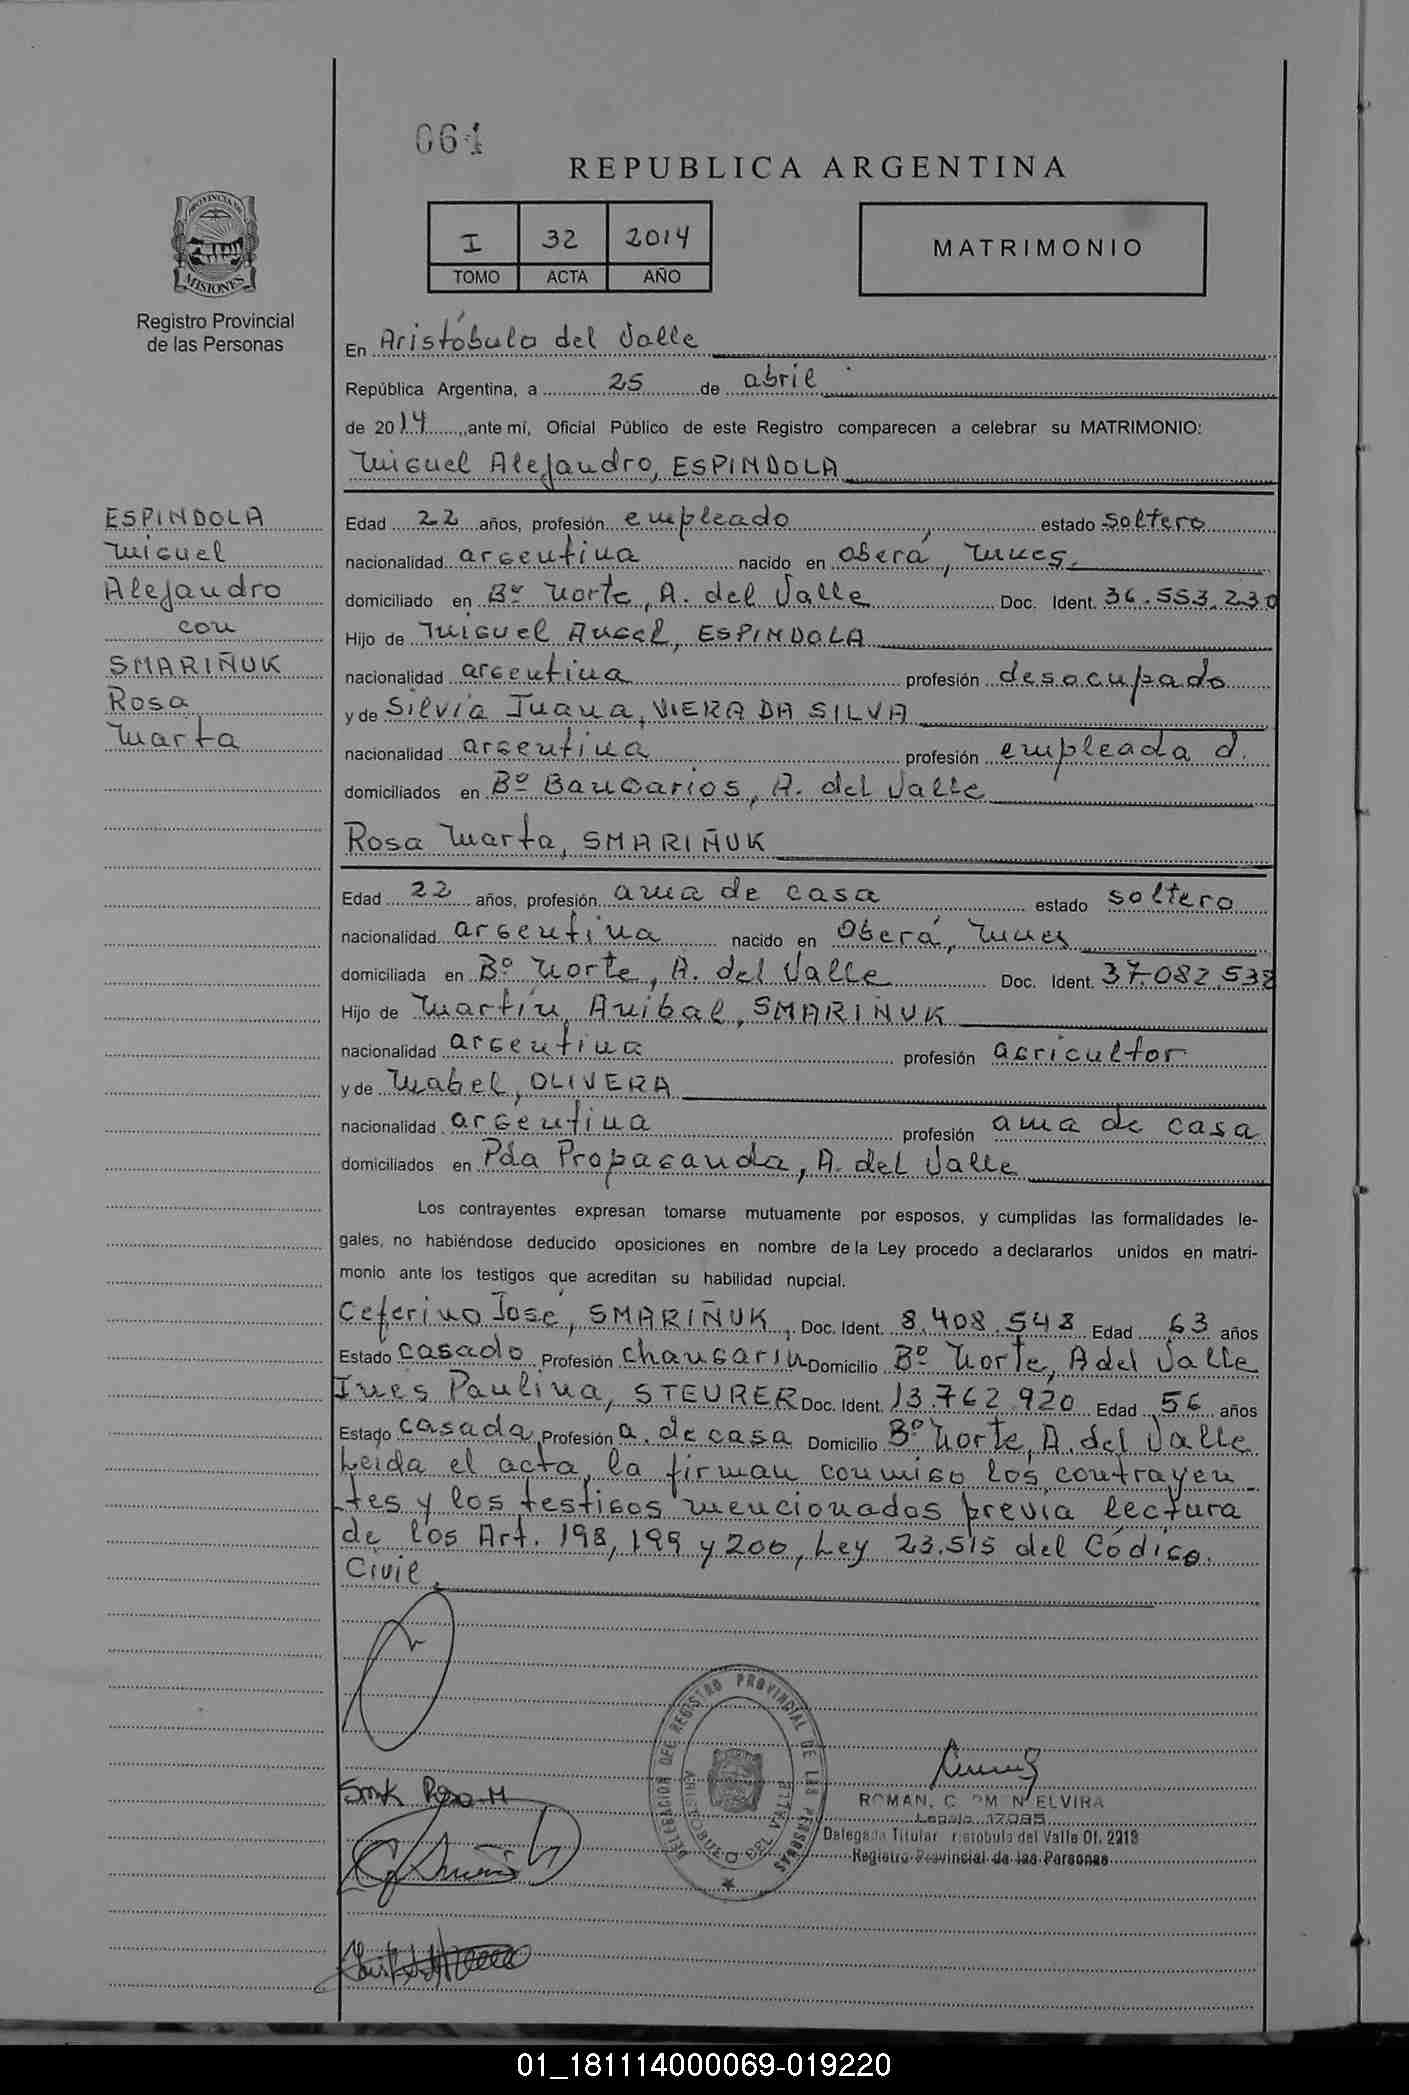 064
REPUBLICA ARGENTINA
I 32 2014
TOMO ACTA AÑO
MATRIMONIO
PROVINCIA DE
MISIONES
Registro Provincial
de las Personas
ESPINDOLA
Miguel
Alejandro
con
SMARIÑUK
Rosa
Marta
En Aristóbulo del Valle
República Argentina, a 25 de abril
de 2014, ante mí, Oficial Público de este Registro comparecen a celebrar su MATRIMONIO:
Miguel Alejandro, ESPINDOLA
Edad 22 años, profesión empleado estado soltero
nacionalidad argentina nacido en Oberá, Mnes.
domiciliado en Bº Norte, A. del Valle Doc. Ident. 36.553.230
Hijo de Miguel Angel, ESPINDOLA
nacionalidad argentina profesión desocupado
y de Silvia Juana, VIERA DA SILVA
nacionalidad argentina profesión empleada d.
domiciliados en Bº Bancarios, A. del Valle
Rosa Marta, SMARIÑUK
Edad 22 años, profesión ama de casa estado soltero
nacionalidad argentina nacido en Oberá, Mnes
domiciliada en Bº Norte, A. del Valle Doc. Ident. 37.082.538
Hijo de Martín Anibal, SMARIÑUK
nacionalidad argentina profesión agricultor
y de Mabel, OLIVERA
nacionalidad argentina profesión ama de casa
domiciliados en Pda Propaganda, A. del Valle
Los contrayentes expresan tomarse mutuamente por esposos, y cumplidas las formalidades le-
gales, no habiéndose deducido oposiciones en nombre de la Ley procedo a declararlos unidos en matri-
monio ante los testigos que acreditan su habilidad nupcial.
Ceferino José, SMARIÑUK, Doc. Ident. 8.408.548 Edad 63 años
Estado casado Profesión changarin Domicilio Bº Norte, A del Valle
Ines Paulina, STEURER Doc. Ident. 13.762.920 Edad 56 años
Estado casada Profesión a. de casa Domicilio Bº Norte, A. del Valle
Leida el acta, la firman conmigo los contrayen
tes y los testigos mencionados previa lectura
de los Art. 198, 199 y 200, Ley 23.515 del Código
Civil.
DELEGACION DEL REGISTRO PROVINCIAL DE LAS PERSONAS
ARISTOBULO DEL VALLE
Smk Rosa M
ROMAN, ELVIRA
Legajo 17085
Delegada Titular Aristobulo del Valle Of. 2213
Registro Provincial de las Personas
01_181114000069-019220